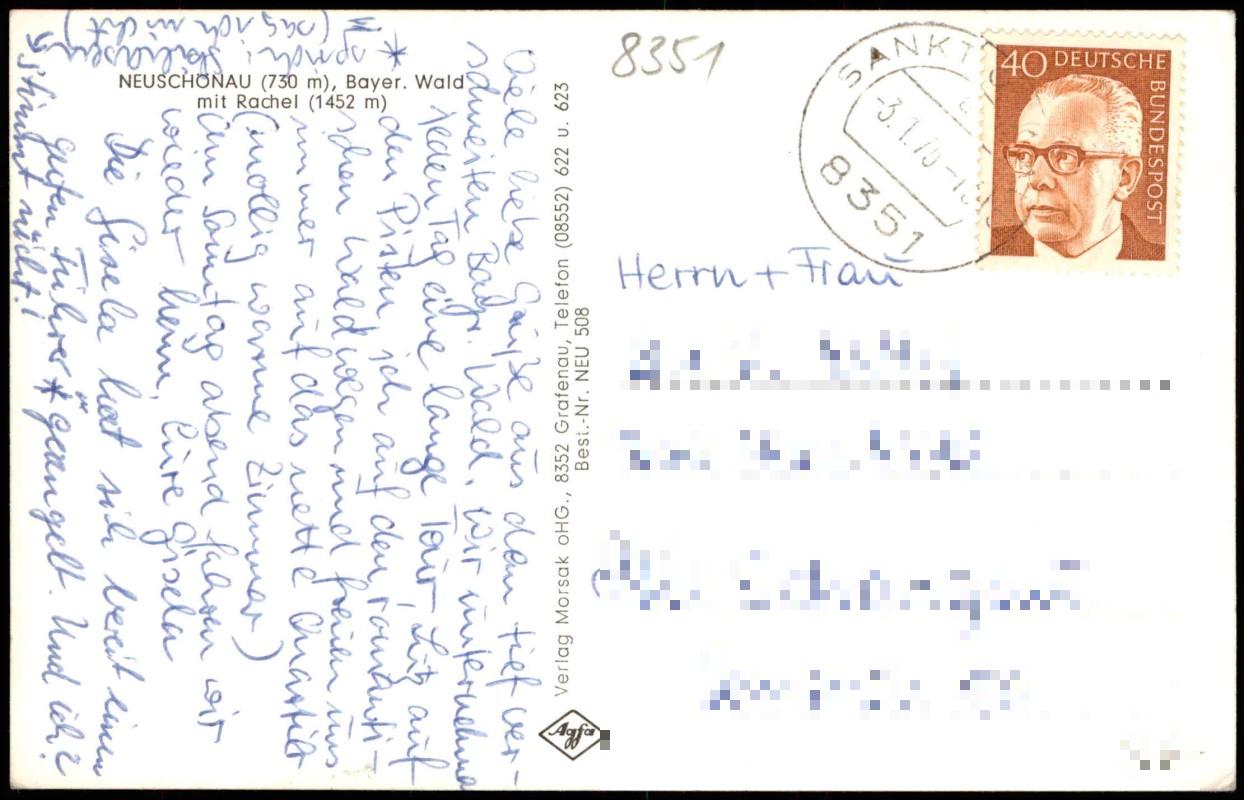 NEUSCHÖNAU (730 m), Bayer. Wald
mit Rachel (1452 m)
Viele liebe Grüße aus dem tief ver-
schneiten Bayr. Wald. Wir unternehmen
jeden Tag eine lange Tour, Lutz auf
den Pisten, ich auf den romanti-
schen Waldwegen und freuen uns
immer auf das nette Quartier
(mollig warme Zimmer)
Am Sonntag abend fahren wir
wieder heim, Eure Gisela
Die Gisela hat sich bereit einen
guten Führer * geangelt. Und ich?
* sprich: Skihasen
(sag ich nicht)
Stimmt nicht!
Verlag Morsak oHG., 8352 Grafenau, Telefon (08552) 622 u. 623
Best.-Nr. NEU 508
Agfa
8351
SANKT
-3.1.7
8351
40 DEUTSCHE
BUNDESPOST
Herrn + Frau